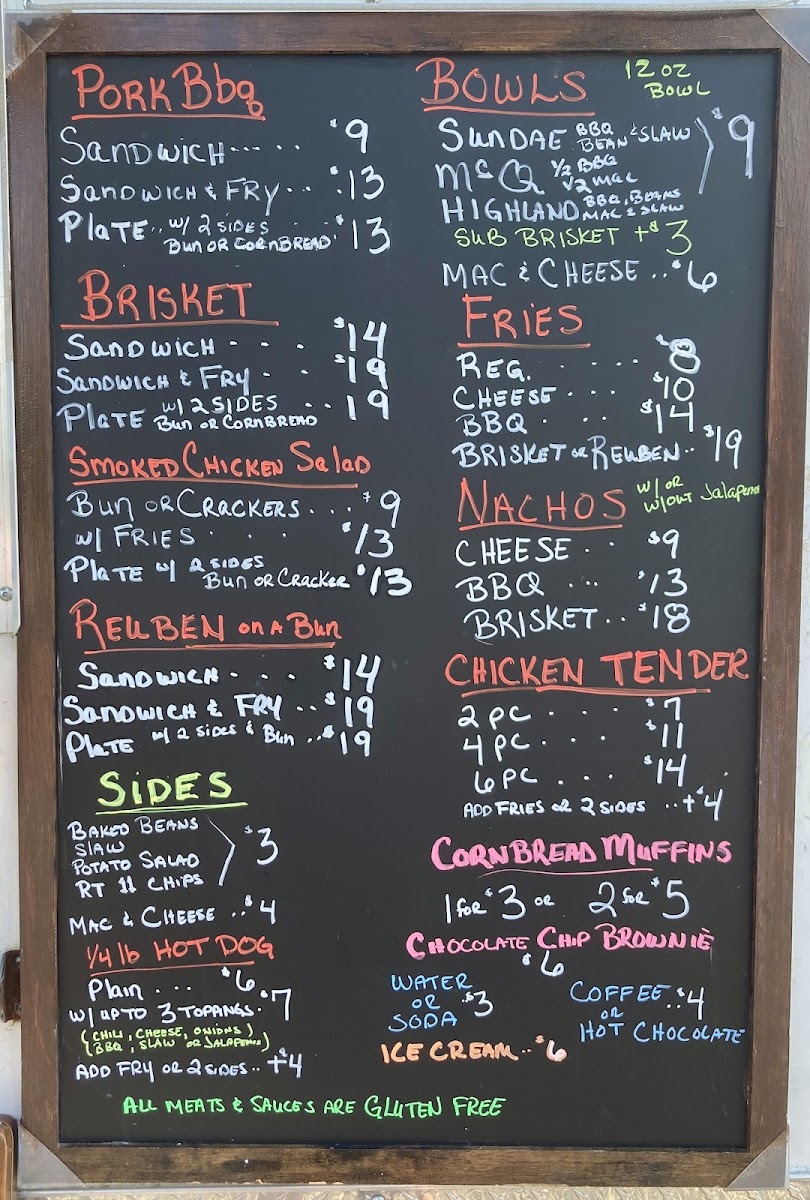 PORK BBq
SANDWICH..... $9
SANDWICH & FRY.... 13
PLATE.. W/ 2 SIDES BUN OR CORNBREAD $13
BRISKET
SANDWICH - - - $14
SANDWICH & FRY - - $19
PLATE W/ 2 SIDES BUN OR CORNBREAD .. 19
SMOKED CHICKEN SALAD
BUN OR CRACKERS... $9
W/ FRIES . . . . $13
PLATE W/ 2 SIDES
BUN OR CRACKER $13
REUBEN ON A BUN
SANDWICH - - . $14
SANDWICH & FRY ..$ 19
PLATE W/ 2 SIDES & BUN ..$ 19
SIDES
BAKED BEANS
SLAW
POTATO SALAD
RT 11 CHIPS
$3
MAC & CHEESE ..$4
1/4 lb HOT DOG
PLAIN ... $6
W/ UP TO 3 TOPANGS.$7
(CHILI, CHEESE, ONIONS)
(BBQ, SLAW OR JALAPENOS)
ADD FRY OR 2 SIDES.. +$4
BOWLS 12 OZ BOWL
SUNDAE BBQ BEAN & SLAW
McQ 1/2 BBQ 1/2 MAC
HIGHLAND BBQ, BEANS MAC & SLAW
$9
SUB BRISKET +$3
MAC & CHEESE ..$6
FRIES
REG. - . . . . $8
CHEESE . . . $10
BBQ . . . . $14
BRISKET OR REUBEN.. $19
NACHOS W/ OR W/OUT Jalapenos
CHEESE . . $9
BBQ ... $13
BRISKET.. $18
CHICKEN TENDER
2 PC - . . . $7
4 PC . . . $11
6 PC . . . $14
ADD FRIES OR 2 SIDES ..+$4
CORNBREAD MUFFINS
1 FOR $3 OR 2 FOR $5
CHOCOLATE CHIP BROWNIE
$6
WATER OR SODA .$3
COFFEE..$4
OR
HOT CHOCOLATE
ICE CREAM..$6
ALL MEATS & SAUCES ARE GLUTEN FREE